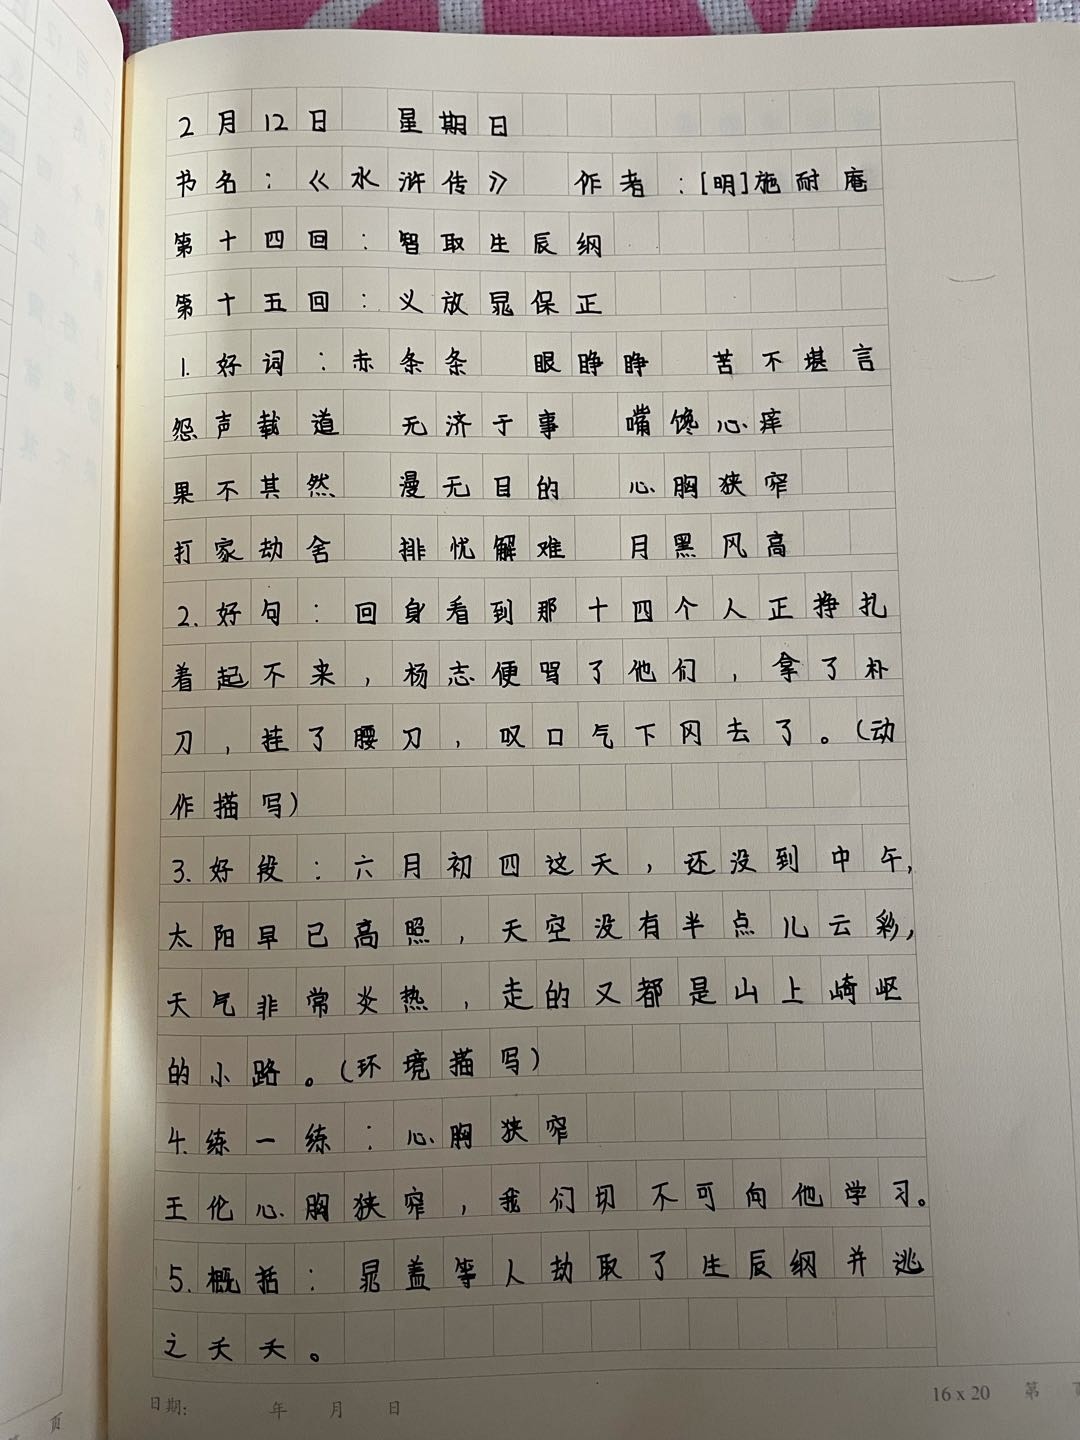 2月12日 星期日
书名:《水浒传》 作者:[明]施耐庵
第十四回:智取生辰纲
第十五回:义放晁保正
1.好词:赤条条 眼睁睁 苦不堪言
怨声载道 无济于事 嘴馋心痒
果不其然 漫无目的 心胸狭窄
打家劫舍 排忧解难 月黑风高
2.好句:回身看到那十四个人正挣扎
着起不来,杨志便骂了他们,拿了朴
刀,挂了腰刀,叹口气下冈去了。(动
作描写)
3.好段:六月初四这天,还没到中午,
太阳早已高照,天空没有半点儿云彩,
天气非常炎热,走的又都是山上崎岖
的小路。(环境描写)
4.练一练:心胸狭窄
王伦心胸狭窄,我们切不可向他学习。
5.概括:晁盖等人劫取了生辰纲并逃
之夭夭。
日期: 年 月 日
16x20 第 页